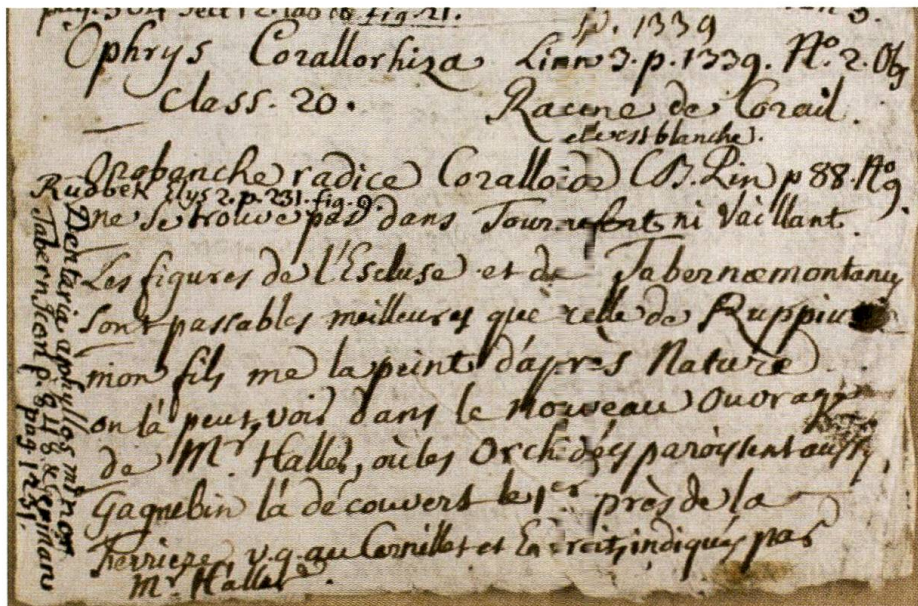 pag. 304 Sect 12. tab 18 fig 21.
p. 1339
Ophrys Corallorhiza Linn 3. p. 1339. No. 2. Obs
Class. 20. Racine de Corail
elle est blanche.
Orobanche radice Coralloide CB. Pin p 88. No 9.
Rudbek Elys 2. p. 231. fig. 9.
ne se trouve pas dans Tournefort ni Vaillant.
Les figures de l'Escluse et de Tabernæmontanus
sont passables meilleures que celle de Ruppius
mon fils me la peint d'apres Nature
on là peut voir dans le nouveau Ouvrage
de Mr. Haller, où les Orchidées paroissent aussy,
Gagnebin là découvert le 1er près de la
Ferriere v.g. au Cernillet et Endroits indiqués par
Mr. Haller
Dentaria aphyllos minor
Tabern Icon p. 848 & German
pag 1251.